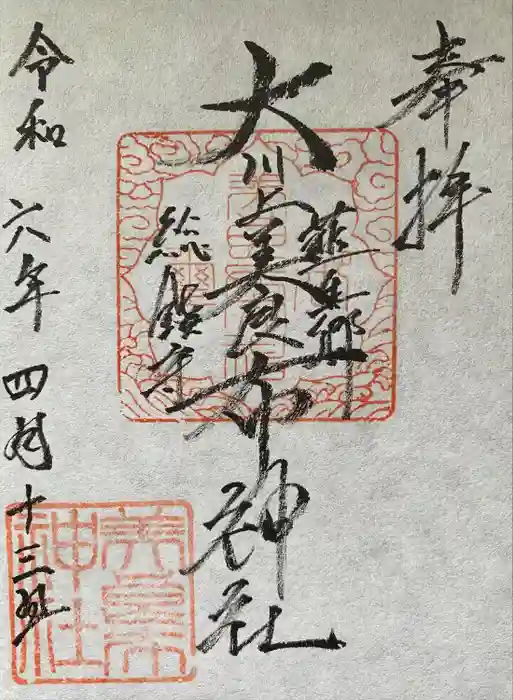 奉拝
韮生郷
大川上美良布神社
総鎮守
令和六年四月十三日